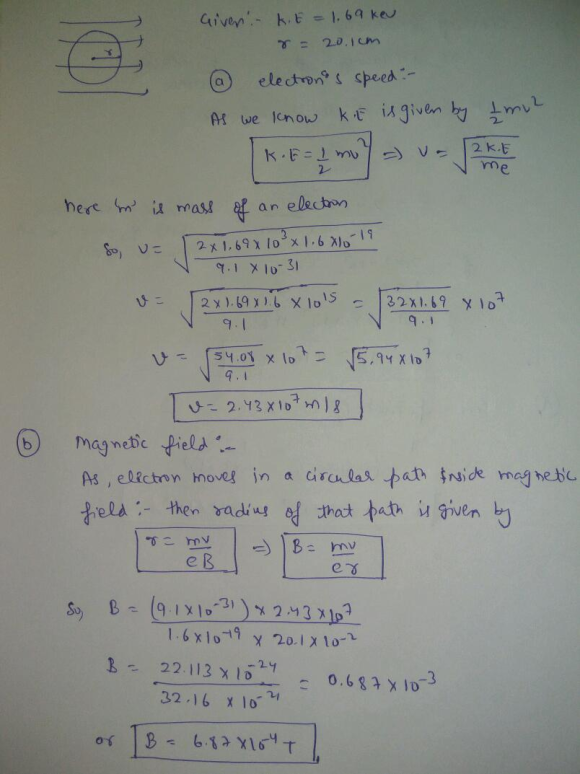 r
Given :- K.E = 1.69 keV
r = 20.1 cm
(a) electron's speed :-
As we know K.E is given by 1/2 mv²
K.E = 1/2 mv² => v = √(2K.E/me)
here 'm' is mass of an electron
So, v = √(2 x 1.69 x 10³ x 1.6 x 10⁻¹⁹ / 9.1 x 10⁻³¹)
v = √(2 x 1.69 x 1.6 x 10¹⁵ / 9.1) = √(32 x 1.69 / 9.1) x 10⁷
v = √(54.08 / 9.1) x 10⁷ = √5.94 x 10⁷
v = 2.43 x 10⁷ m/s
(b) Magnetic field :-
As, electron moves in a circular path inside magnetic
field :- then radius of that path is given by
r = mv/eB => B = mv/er
So, B = (9.1 x 10⁻³¹) x 2.43 x 10⁷ / 1.6 x 10⁻¹⁹ x 20.1 x 10⁻²
B = 22.113 x 10⁻²⁴ / 32.16 x 10⁻²¹ = 0.687 x 10⁻³
or B = 6.87 x 10⁻⁴ T